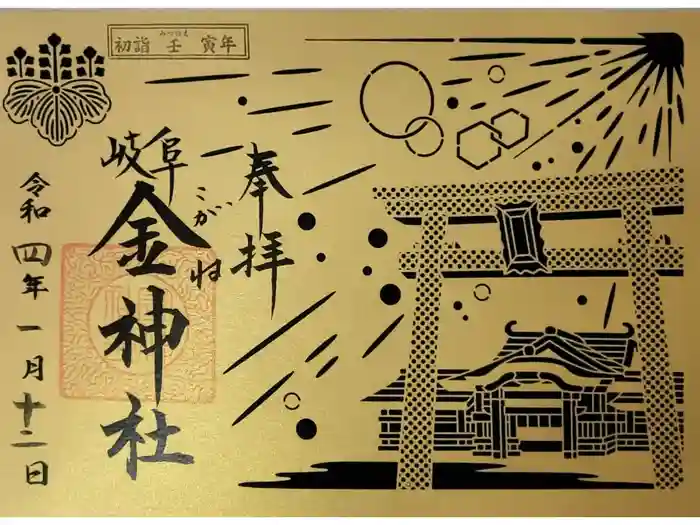 初詣 壬 寅年
みずのえ
奉拝
岐阜
金神社
こがね
令和四年一月十二日